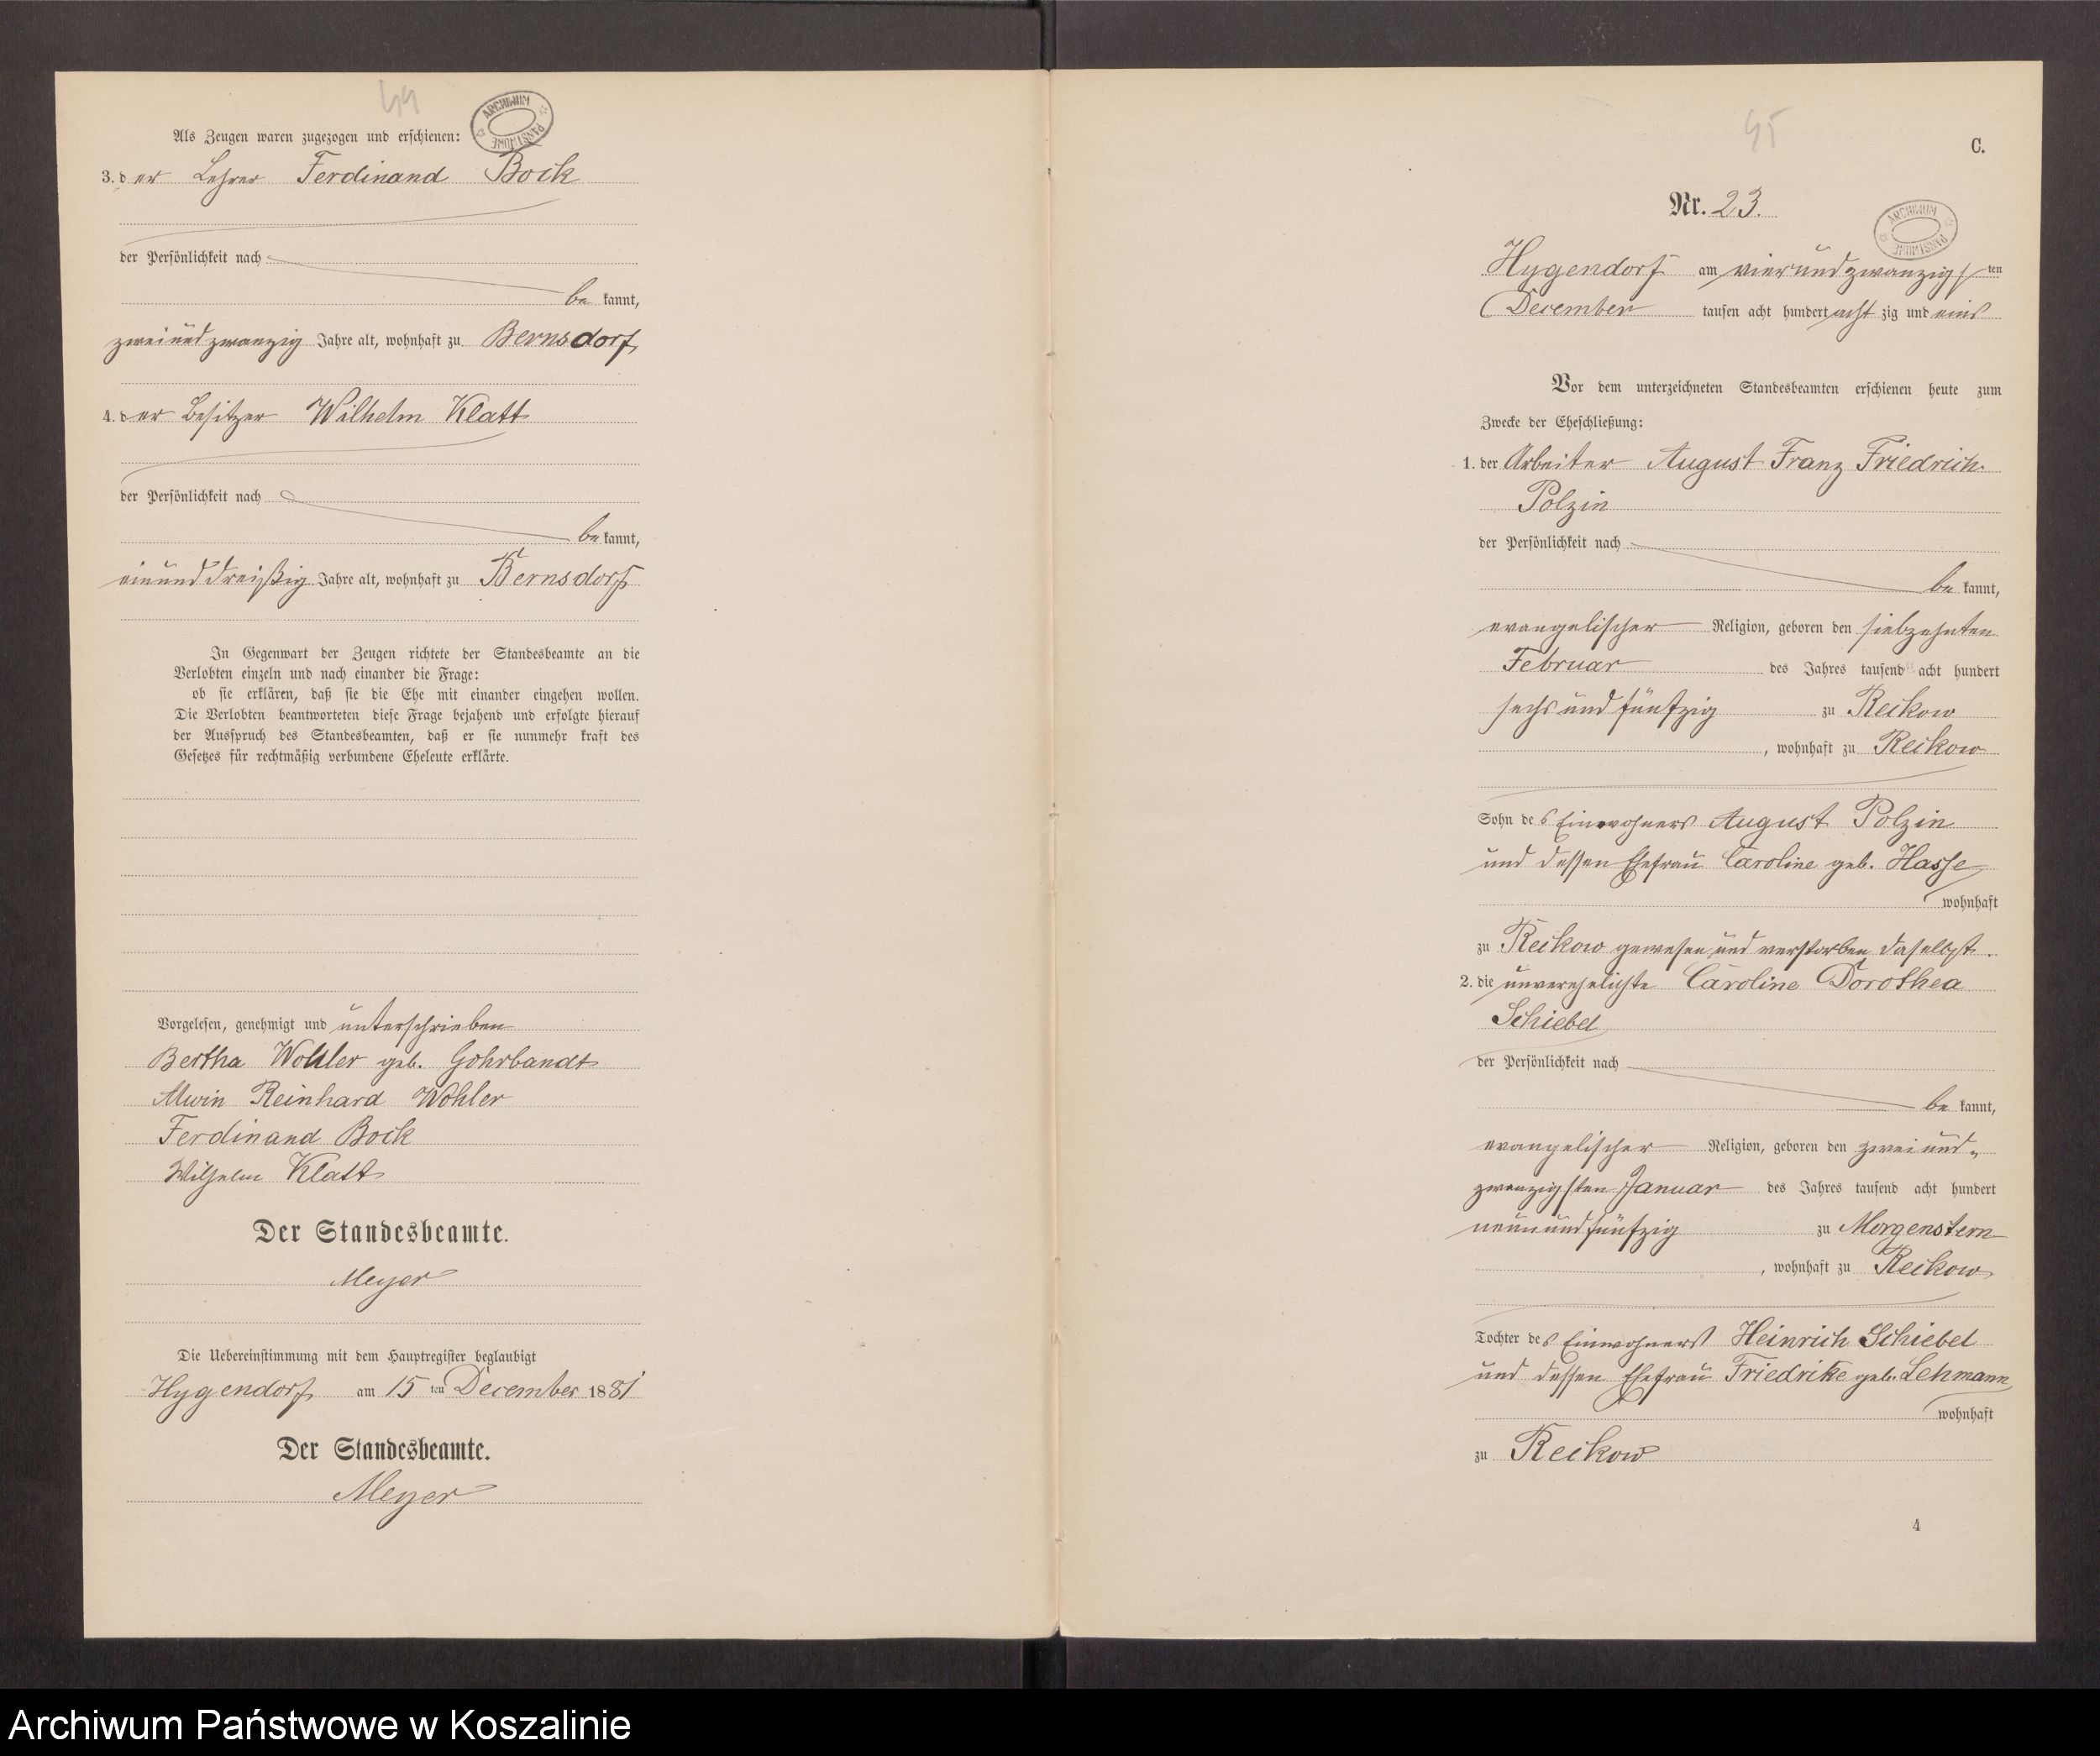 44
Als Zeugen waren zugezogen und erschienen:
ARCHIWUM PAŃSTWOWE
3. der Lehrer Ferdinand Bock
der Persönlichkeit nach
be kannt,
zweiundzwanzig Jahre alt, wohnhaft zu Bernsdorf
4. der Besitzer Wilhelm Klatt
der Persönlichkeit nach
be kannt,
einunddreißig Jahre alt, wohnhaft zu Bernsdorf
In Gegenwart der Zeugen richtete der Standesbeamte an die
Verlobten einzeln und nach einander die Frage:
ob sie erklären, daß sie die Ehe mit einander eingehen wollen.
Die Verlobten beantworteten diese Frage bejahend und erfolgte hierauf
der Ausspruch des Standesbeamten, daß er sie nunmehr kraft des
Gesetzes für rechtmäßig verbundene Eheleute erklärte.
Vorgelesen, genehmigt und unterschrieben
Bertha Wohler geb. Gohrbandt
Alwin Reinhard Wohler
Ferdinand Bock
Wilhelm Klatt
Der Standesbeamte.
Meyer
Die Uebereinstimmung mit dem Hauptregister beglaubigt
Hygendorf am 15 ten December 1881
Der Standesbeamte.
Meyer
45
C.
Nr. 23.
ARCHIWUM PAŃSTWOWE
Hygendorf am vierundzwanzigsten
December tausen acht hundert acht zig und eins
Vor dem unterzeichneten Standesbeamten erschienen heute zum
Zwecke der Eheschließung:
1. der Arbeiter August Franz Friedrich
Polzin
der Persönlichkeit nach
be kannt,
evangelischer Religion, geboren den siebzehnten
Februar des Jahres tausend acht hundert
sechs und fünfzig zu Reikow
, wohnhaft zu Reikow
Sohn des Einwohners August Polzin
und dessen Ehefrau Caroline geb. Hasse
wohnhaft
zu Reikow gewesen und verstorben daselbst.
2. die unverehelichte Caroline Dorothea
Schiebel
der Persönlichkeit nach
be kannt,
evangelischer Religion, geboren den zweiund-
zwanzigsten Januar des Jahres tausend acht hundert
neunundfünfzig zu Morgenstern
, wohnhaft zu Reikow
Tochter des Einwohners Heinrich Schiebel
und dessen Ehefrau Friedrike geb. Lehmann
wohnhaft
zu Reikow
4
Archiwum Państwowe w Koszalinie